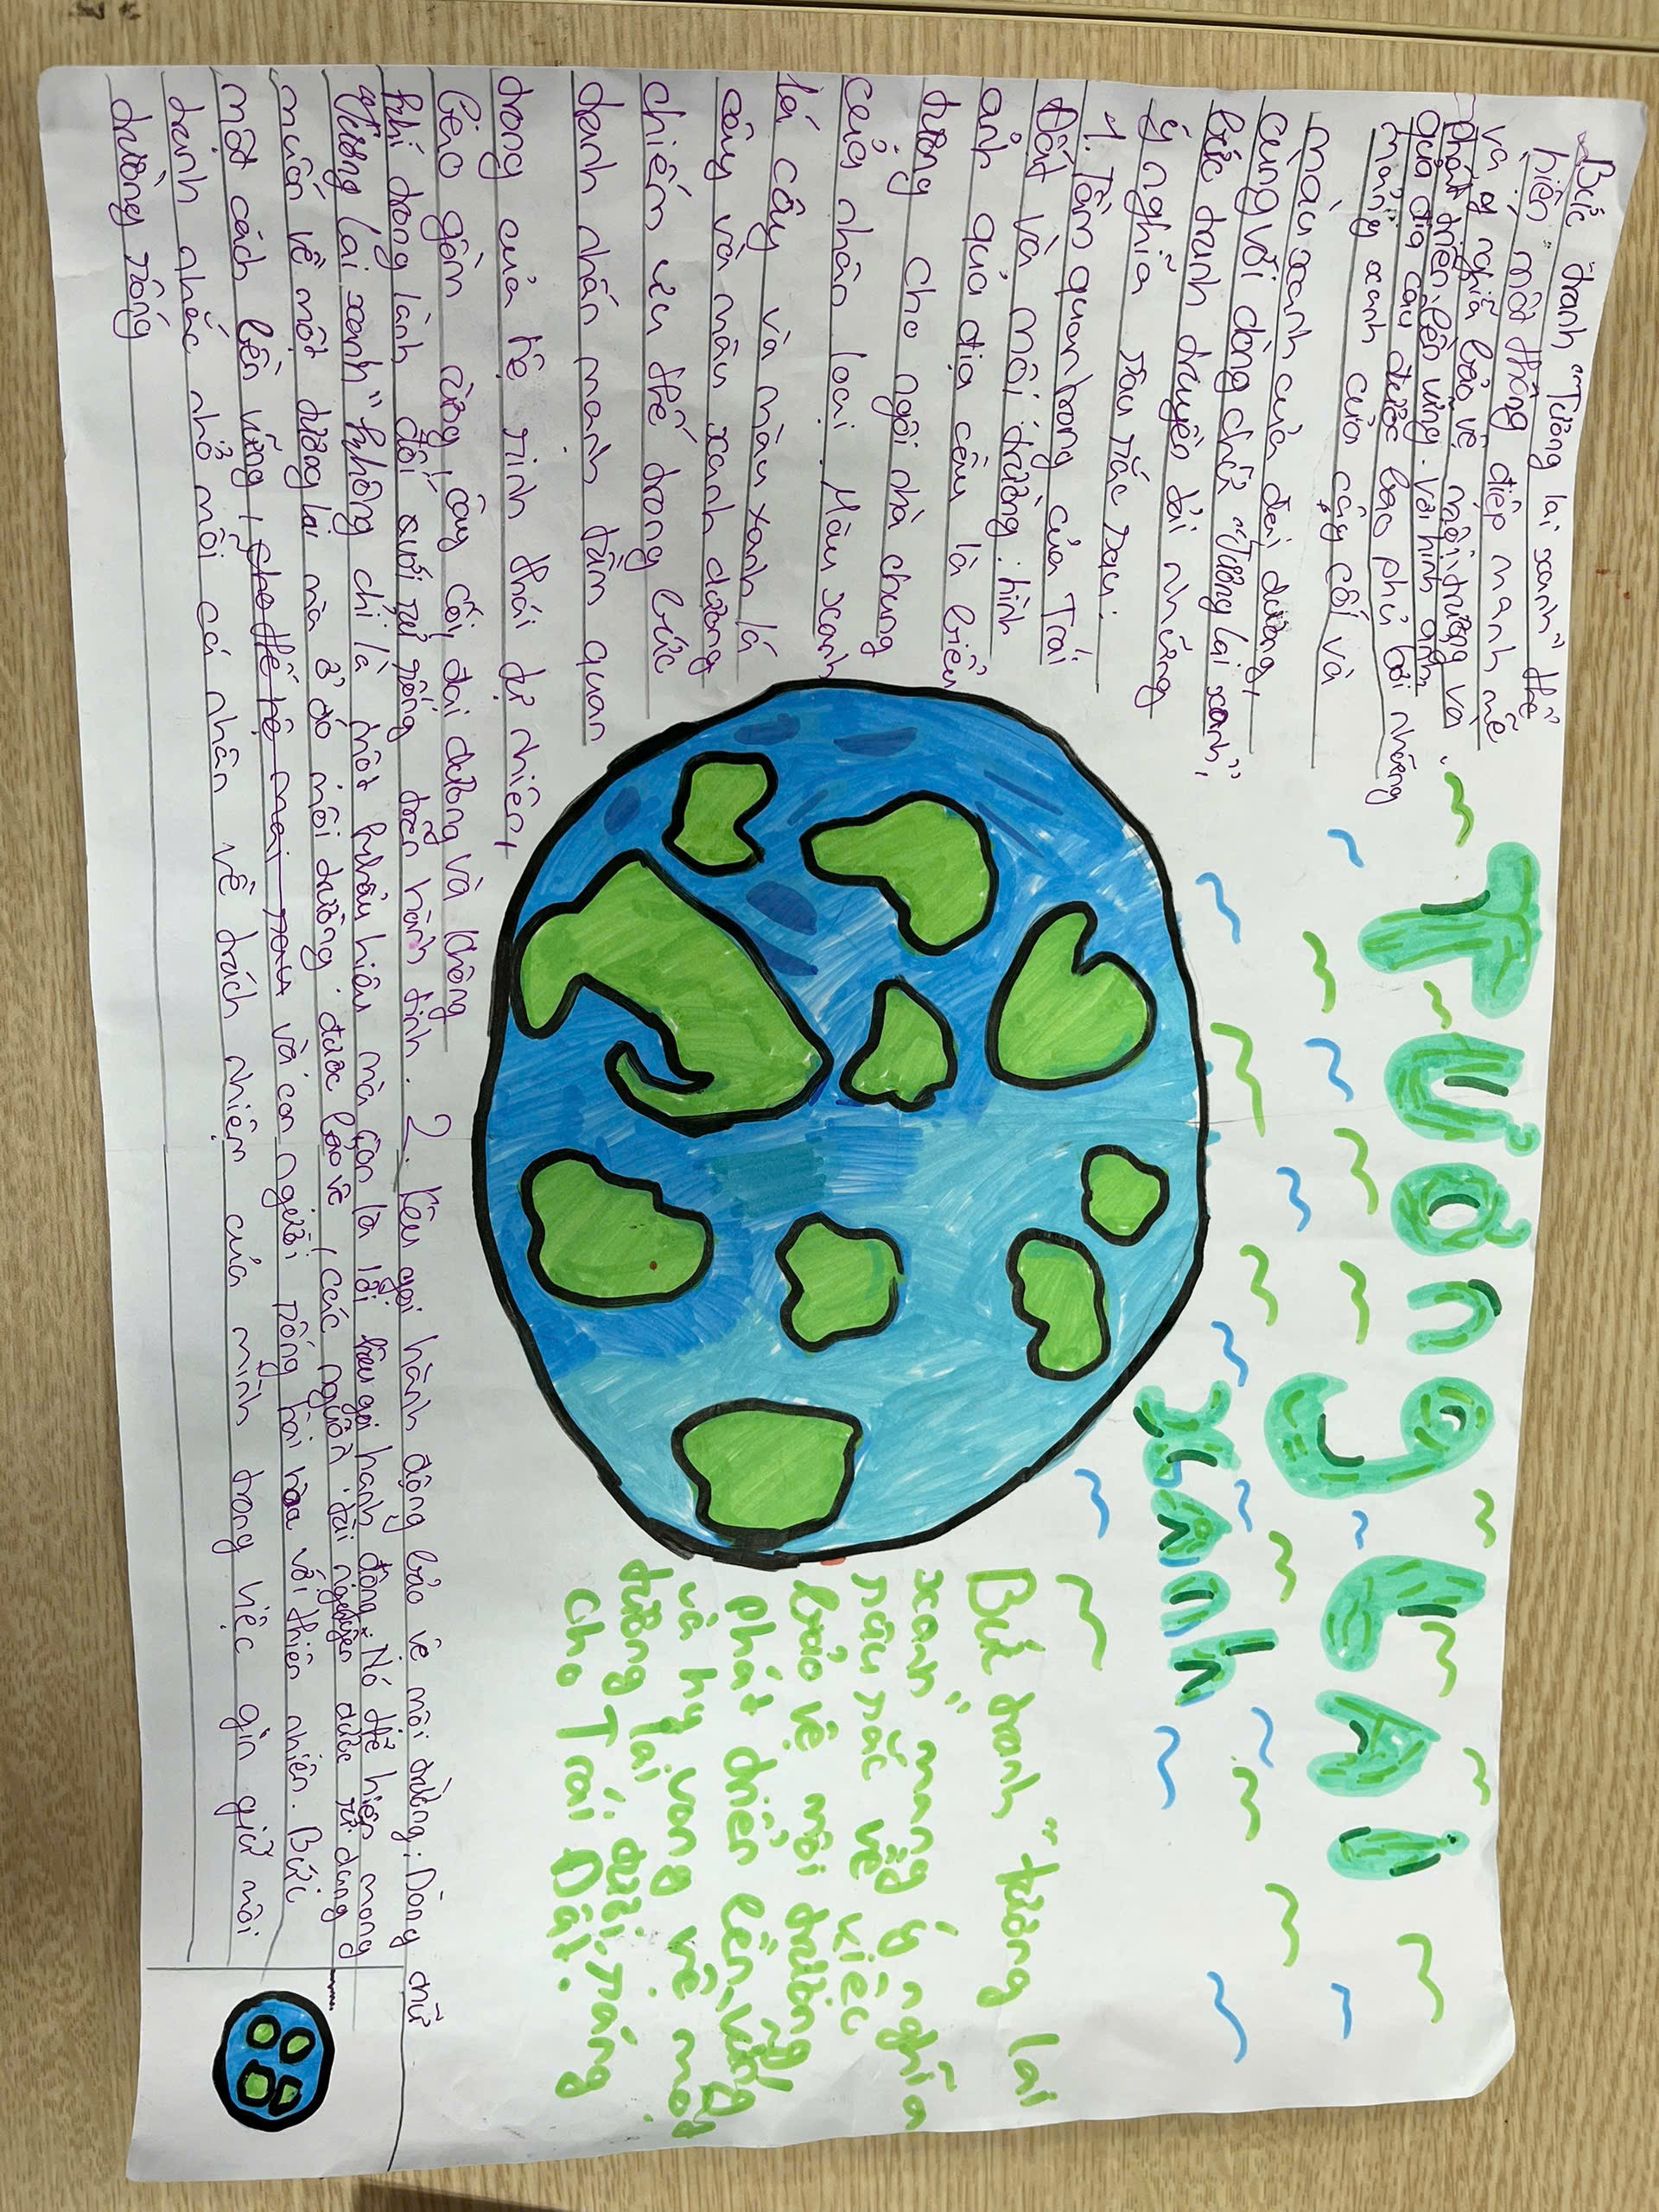 Tương LAi
xanh
Bức tranh "Tương lai xanh" thể
hiện một thông điệp mạnh mẽ
và ý nghĩa bảo vệ môi trường và
phát triển bền vững. với hình ảnh
quả địa cầu được bao phủ bởi những
mảng xanh của cây cối và
màu xanh của đại dương,
cùng với dòng chữ "Tương lai xanh",
bức tranh truyền tải những
ý nghĩa sâu sắc sau:
1. Tầm quan trọng của Trái
Đất và môi trường: hình
ảnh quả địa cầu là biểu
tượng cho ngôi nhà chung
của nhân loại. Màu xanh
lá cây và màu xanh lá
cây và màu xanh dương
chiếm ưu thế trong bức
tranh nhấn mạnh tầm quan
trọng của hệ sinh thái tự nhiên,
bao gồm rừng, cây cối, đại dương và không
khí trong lành đối với sự sống trên hành tinh. 2. Kêu gọi hành động bảo vệ môi trường: Dòng chữ
"Tương lai xanh" không chỉ là một khẩu hiệu mà còn là lời kêu gọi hành động. Nó thể hiện mong
muốn về một tương lai mà ở đó môi trường được bảo vệ, các nguồn tài nguyên được sử dụng
một cách bền vững, cho thế hệ mai sau và con người sống hài hòa với thiên nhiên. Bức
tranh nhắc nhở mỗi cá nhân về trách nhiệm của mình trong việc gìn giữ môi
trường sống
Bức tranh "tương lai
xanh" mang ý nghĩa
sâu sắc về việc
bảo vệ môi trường,
phát triển bền vững
và hy vọng về một
tương lai tươi sáng
cho Trái Đất.